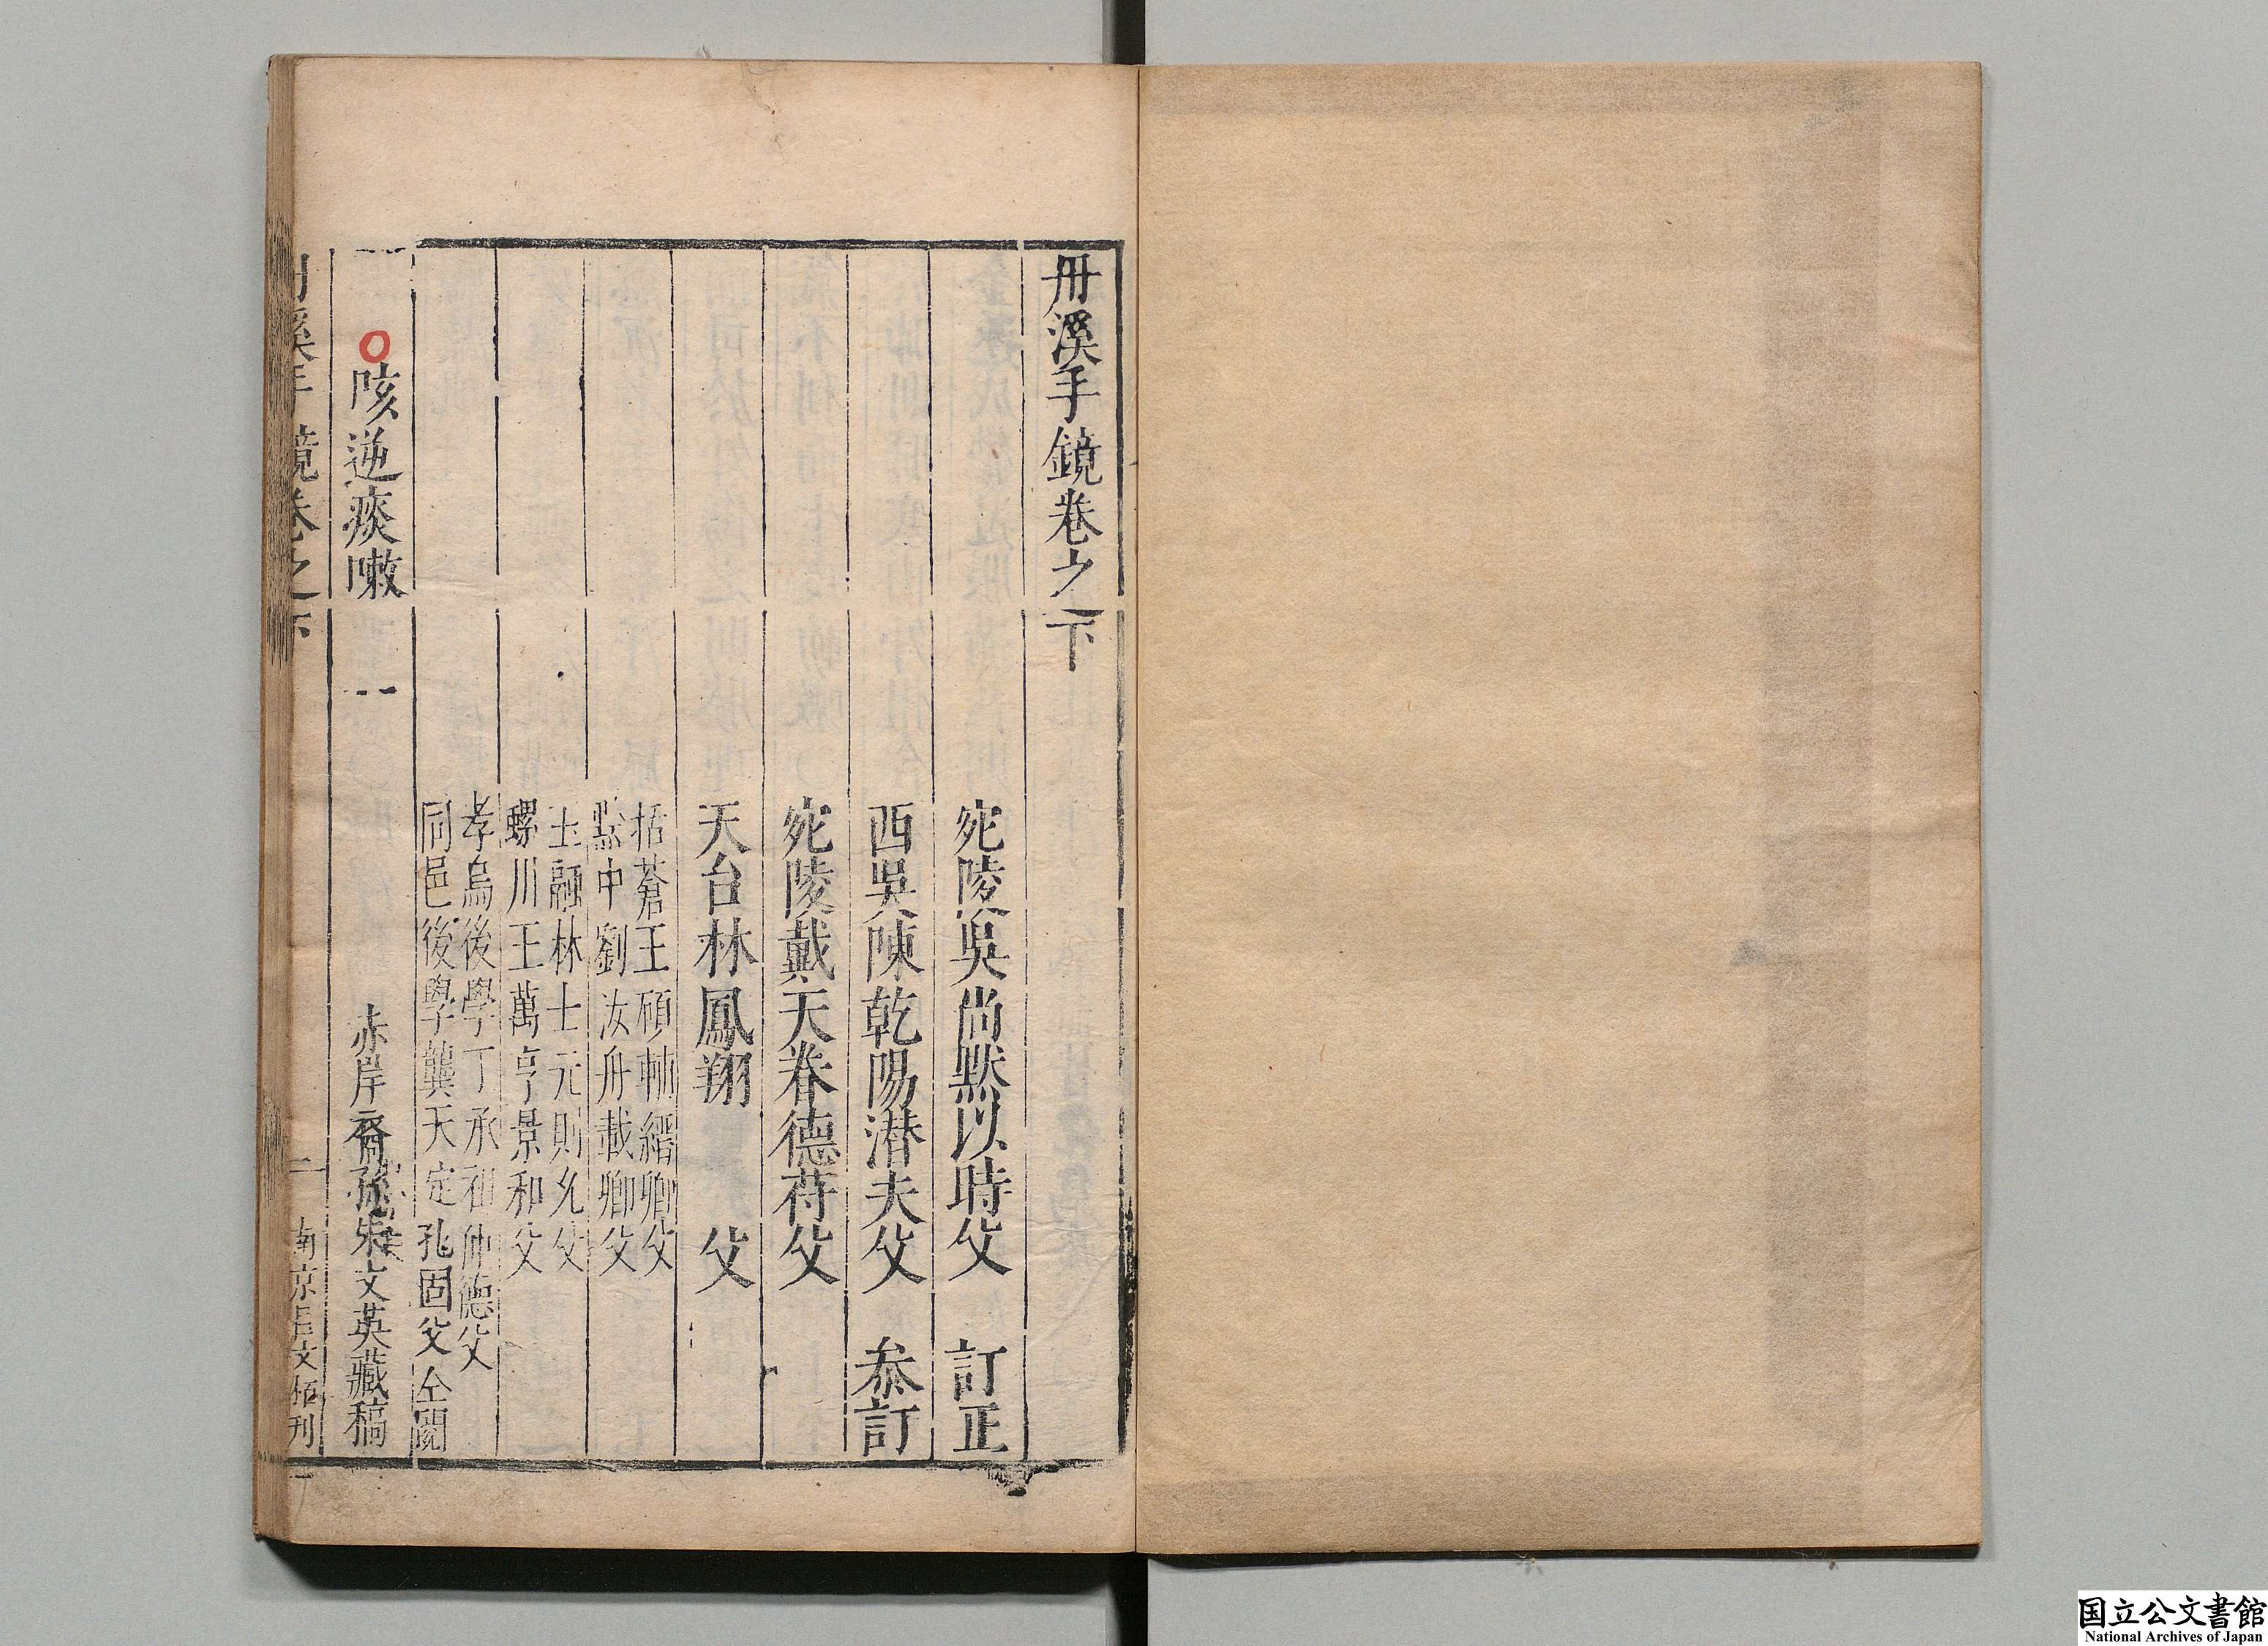 丹溪手鏡卷之下
宛陵吳尚黙以時父　訂正
西吳陳乾陽潜夫父　叅訂
宛陵戴天眷德苻父
天台林鳳翔　父
括蒼王碩輔縉卿父
黔中劉汝舟載卿父
玉融林士元則允父
螺川王萬亨景和父
孝烏後學丁承祖仲德父
同邑後學龔天定孔固父仝閱
赤岸裔孫朱文英藏稿
咳逆痰嗽　一
丹溪手鏡卷之下　二　南京呂文栢刊
国立公文書館
National Archives of Japan